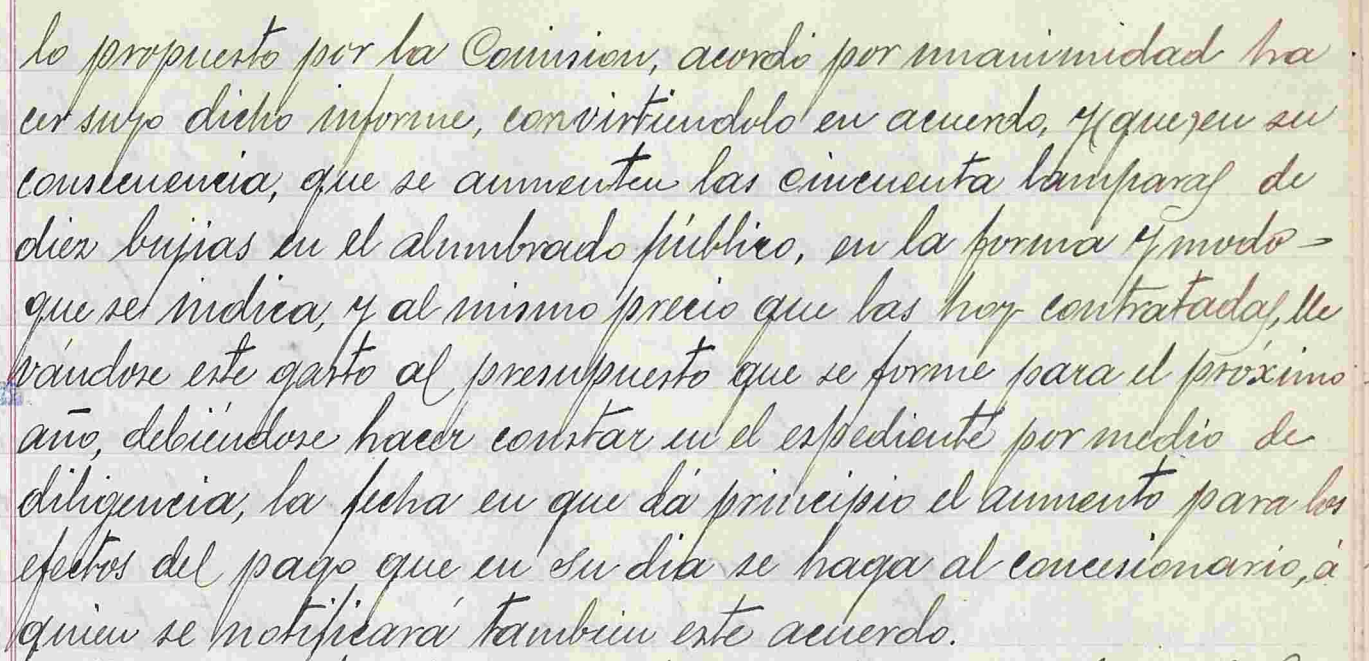 lo propuesto por la Comision, acordó por unanimidad ha
cer suyo dicho informe, convirtiendolo en acuerdo, y (que) en su
consecuencia, que se aumenten las cincuenta lamparas de
diez bujias en el alumbrado público, en la forma y modo -
que se indica, y al mismo precio que las hoy contratadas, lle
vándose este gasto al presupuesto que se forme para el próximo
año, debiéndose hacer constar en el espediente por medio de
diligencia, la fecha en que dá principio el aumento para los
efectos del pago que en su dia se haga al concesionario, á
quien se notificará tambien este acuerdo.